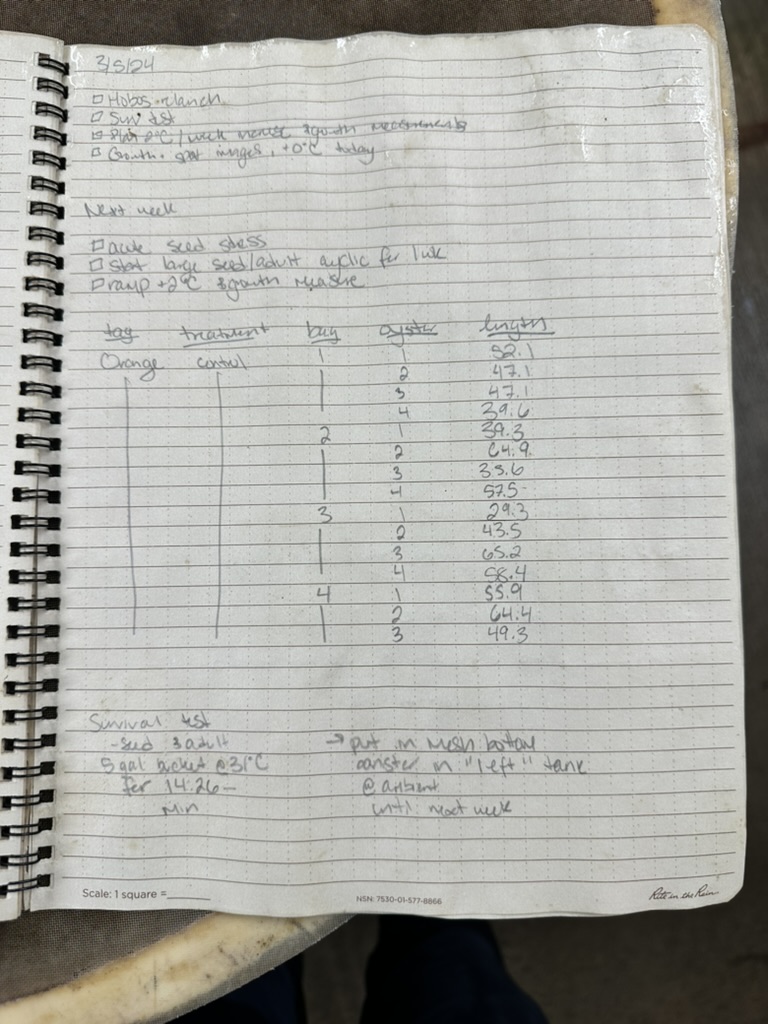 3/5/24
□ Hobos relanch
□ Surv test
□ Start 2°C/week increase & growth measurements
□ Growth + seed images, +0°C today
Next week
□ acute seed stress
□ start large seed/adult cyclic for 1wk
□ ramp +2°C & growth measure
tag treatment bag oyster length
Orange control 1 1 52.1
2 47.1
3 47.1
4 39.6
2 1 39.3
2 64.9
3 35.6
4 57.5
3 1 29.3
2 43.5
3 65.2
4 58.4
4 1 55.9
2 64.4
3 49.3
Survival test
- seed & adult → put in mesh bottom
5 gal bucket @ 31°C in "left" tank
for 14:26— @ ambient
min until next week
Scale: 1 square = ______
NSN: 7530-01-577-8866
Rite in the Rain